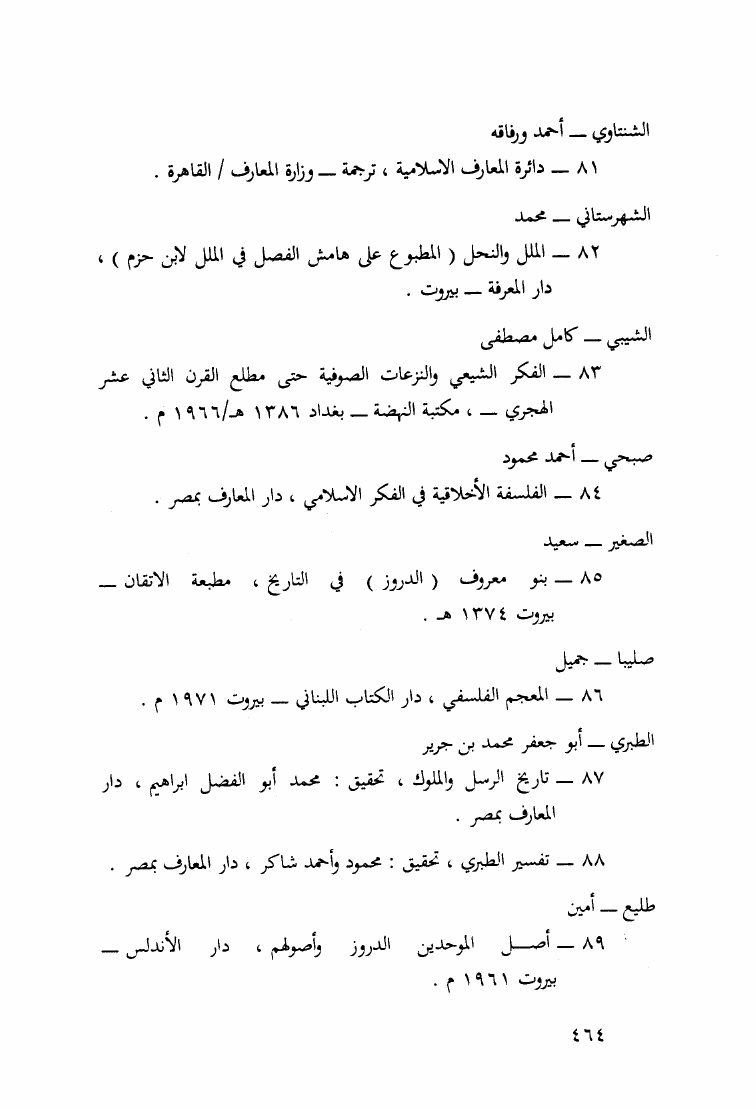 الشنتاوي — أحمد ورفاقه
٨١ — دائرة المعارف الاسلامية ، ترجمة — وزارة المعارف / القاهرة .
الشهرستاني — محمد
٨٢ — الملل والنحل ( المطبوع على هامش الفصل في الملل لابن حزم ) ،
دار المعرفة — بيروت .
الشيبي — كامل مصطفى
٨٣ — الفكر الشيعي والنزعات الصوفية حتى مطلع القرن الثاني عشر
الهجري — ، مكتبة النهضة — بغداد ١٣٨٦ هـ/١٩٦٦ م .
صبحي — أحمد محمود
٨٤ — الفلسفة الأخلاقية في الفكر الاسلامي ، دار المعارف بمصر .
الصغير — سعيد
٨٥ — بنو معروف ( الدروز ) في التاريخ ، مطبعة الاتقان —
بيروت ١٣٧٤ هـ .
صليبا — جميل
٨٦ — المعجم الفلسفي ، دار الكتاب اللبناني — بيروت ١٩٧١ م .
الطبري — أبو جعفر محمد بن جرير
٨٧ — تاريخ الرسل والملوك ، تحقيق : محمد أبو الفضل ابراهيم ، دار
المعارف بمصر .
٨٨ — تفسير الطبري ، تحقيق : محمود وأحمد شاكر ، دار المعارف بمصر .
طليع — أمين
٨٩ — أصل الموحدين الدروز وأصولهم ، دار الأندلس —
بيروت ١٩٦١ م .
٤٦٤